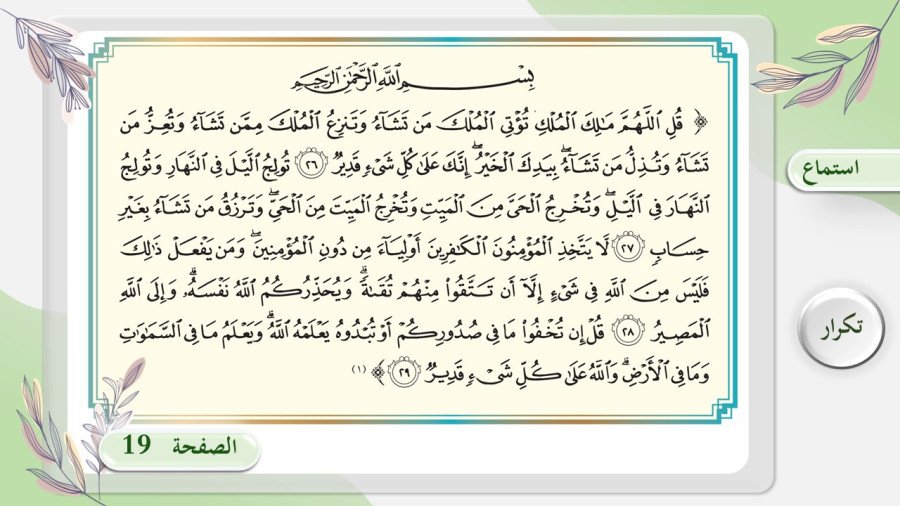 بِسْمِ اللَّهِ الرَّحْمَٰنِ الرَّحِيمِ
﴿ قُلِ اللَّهُمَّ مَالِكَ الْمُلْكِ تُؤْتِي الْمُلْكَ مَن تَشَاءُ وَتَنزِعُ الْمُلْكَ مِمَّن تَشَاءُ وَتُعِزُّ مَن
تَشَاءُ وَتُذِلُّ مَن تَشَاءُ ۖ بِيَدِكَ الْخَيْرُ ۖ إِنَّكَ عَلَىٰ كُلِّ شَيْءٍ قَدِيرٌ ٢٦ تُولِجُ اللَّيْلَ فِي النَّهَارِ وَتُولِجُ
النَّهَارَ فِي اللَّيْلِ ۖ وَتُخْرِجُ الْحَيَّ مِنَ الْمَيِّتِ وَتُخْرِجُ الْمَيِّتَ مِنَ الْحَيِّ ۖ وَتَرْزُقُ مَن تَشَاءُ بِغَيْرِ
حِسَابٍ ٢٧ لَّا يَتَّخِذِ الْمُؤْمِنُونَ الْكَافِرِينَ أَوْلِيَاءَ مِن دُونِ الْمُؤْمِنِينَ ۖ وَمَن يَفْعَلْ ذَٰلِكَ
فَلَيْسَ مِنَ اللَّهِ فِي شَيْءٍ إِلَّا أَن تَتَّقُوا مِنْهُمْ تُقَاةً ۗ وَيُحَذِّرُكُمُ اللَّهُ نَفْسَهُ ۗ وَإِلَى اللَّهِ
الْمَصِيرُ ٢٨ قُلْ إِن تُخْفُوا مَا فِي صُدُورِكُمْ أَوْ تُبْدُوهُ يَعْلَمْهُ اللَّهُ ۗ وَيَعْلَمُ مَا فِي السَّمَاوَاتِ
وَمَا فِي الْأَرْضِ ۗ وَاللَّهُ عَلَىٰ كُلِّ شَيْءٍ قَدِيرٌ ٢٩ ﴾ (١)
استماع
تكرار
الصفحة 19